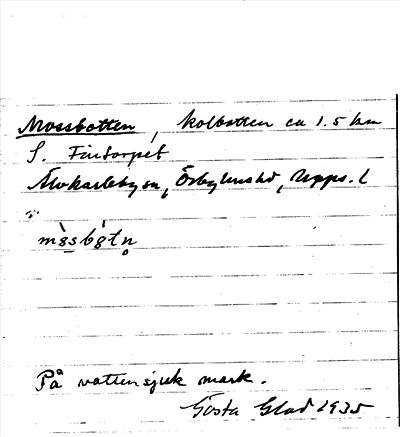 Mossbotten, kolbotten ca 1.5 km
S. Fintorpet
Älvkarleby sn, Örbyhus hd, Upps. l
mò̱sbòtn̥
På vattensjuk mark.
Gösta Glad 1935